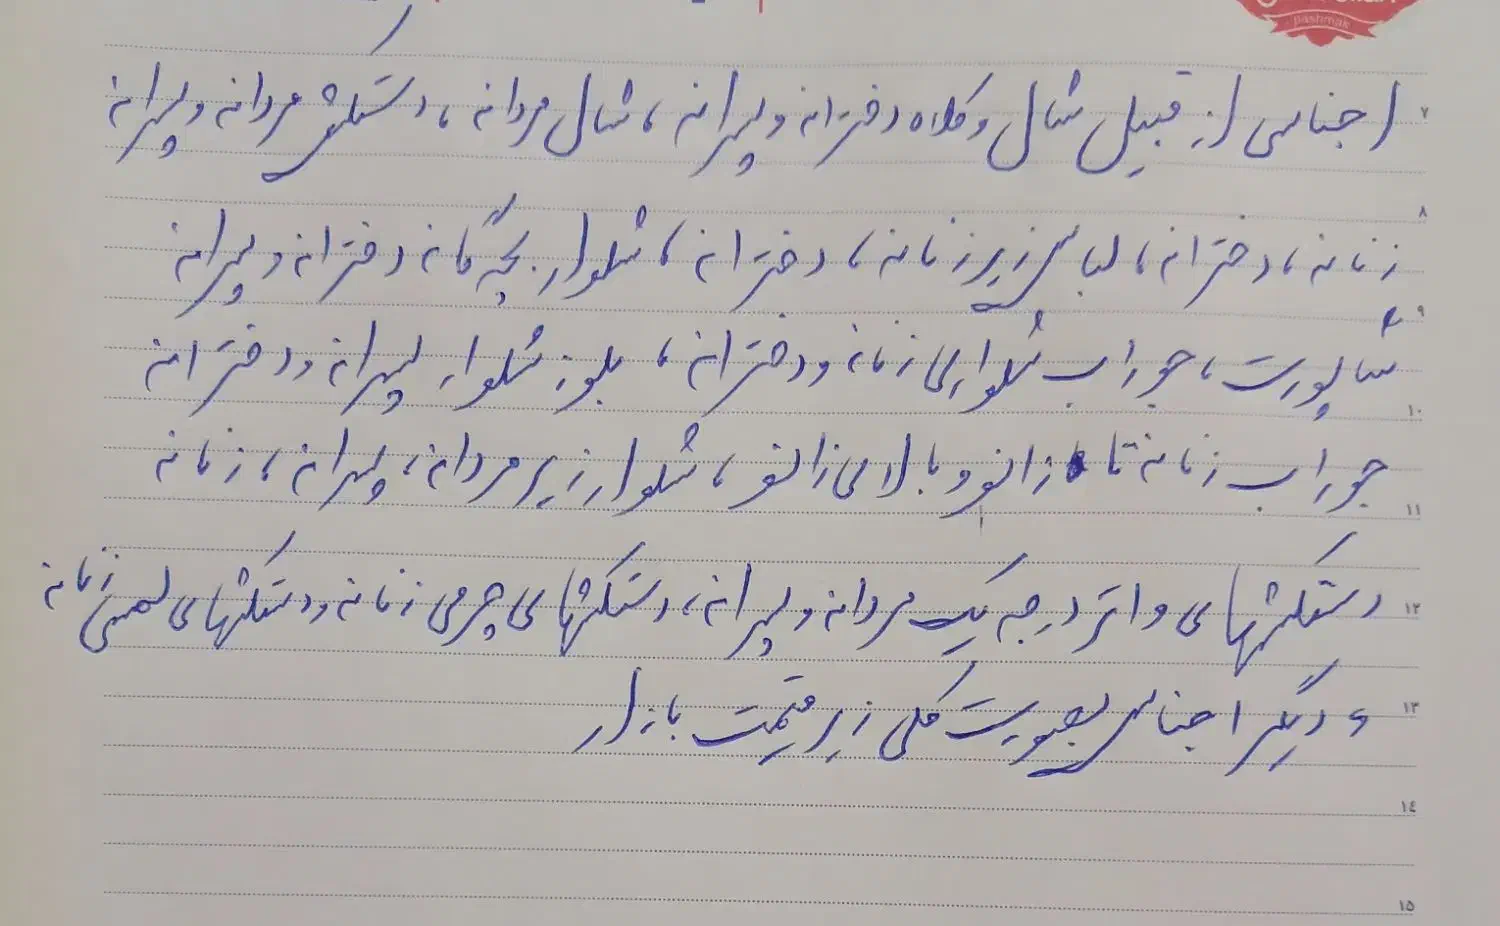 pashmak
۷
اجناسی از قبیل شال و کلاه دخترانه و پسرانه ، شال مردانه ، دستکش مردانه و پسرانه
۸
زنانه ، دخترانه ، لباس زیر زنانه ، دخترانه ، شلوار بچه گانه دخترانه و پسرانه
۹
ساپورت ، جوراب شلواری زنانه و دخترانه ، بلوز شلوار پسرانه و دخترانه
۱۰
جوراب زنانه تا زانو و بالای زانو ، شلوار زیر مردانه ، پسرانه ، زنانه
۱۱
دستکشهای واتر درجه یک مردانه و پسرانه ، دستکشهای چرمی زنانه و دستکشهای لمسی زنانه
۱۲
و دیگر اجناس بصورت کلی زیر قیمت بازار
۱۳
۱۴
۱۵